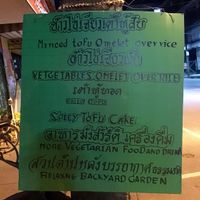 ข้าวไข่เจียวเต้าหู้สับ
Minced Tofu Omelet over rice
ข้าวไข่เจียวผัก
VETGETABLES OMELET OVER RICE
เต้าหู้ทอด
Spicy Tofu Cake
อาหารมังสวิรัติ เครื่องดื่ม
MORE VEGETARIAN FOOD AND DRINK
สวนด้านหลังบรรยากาศธรรมชาติ
RELAXING BACKYARD GARDEN